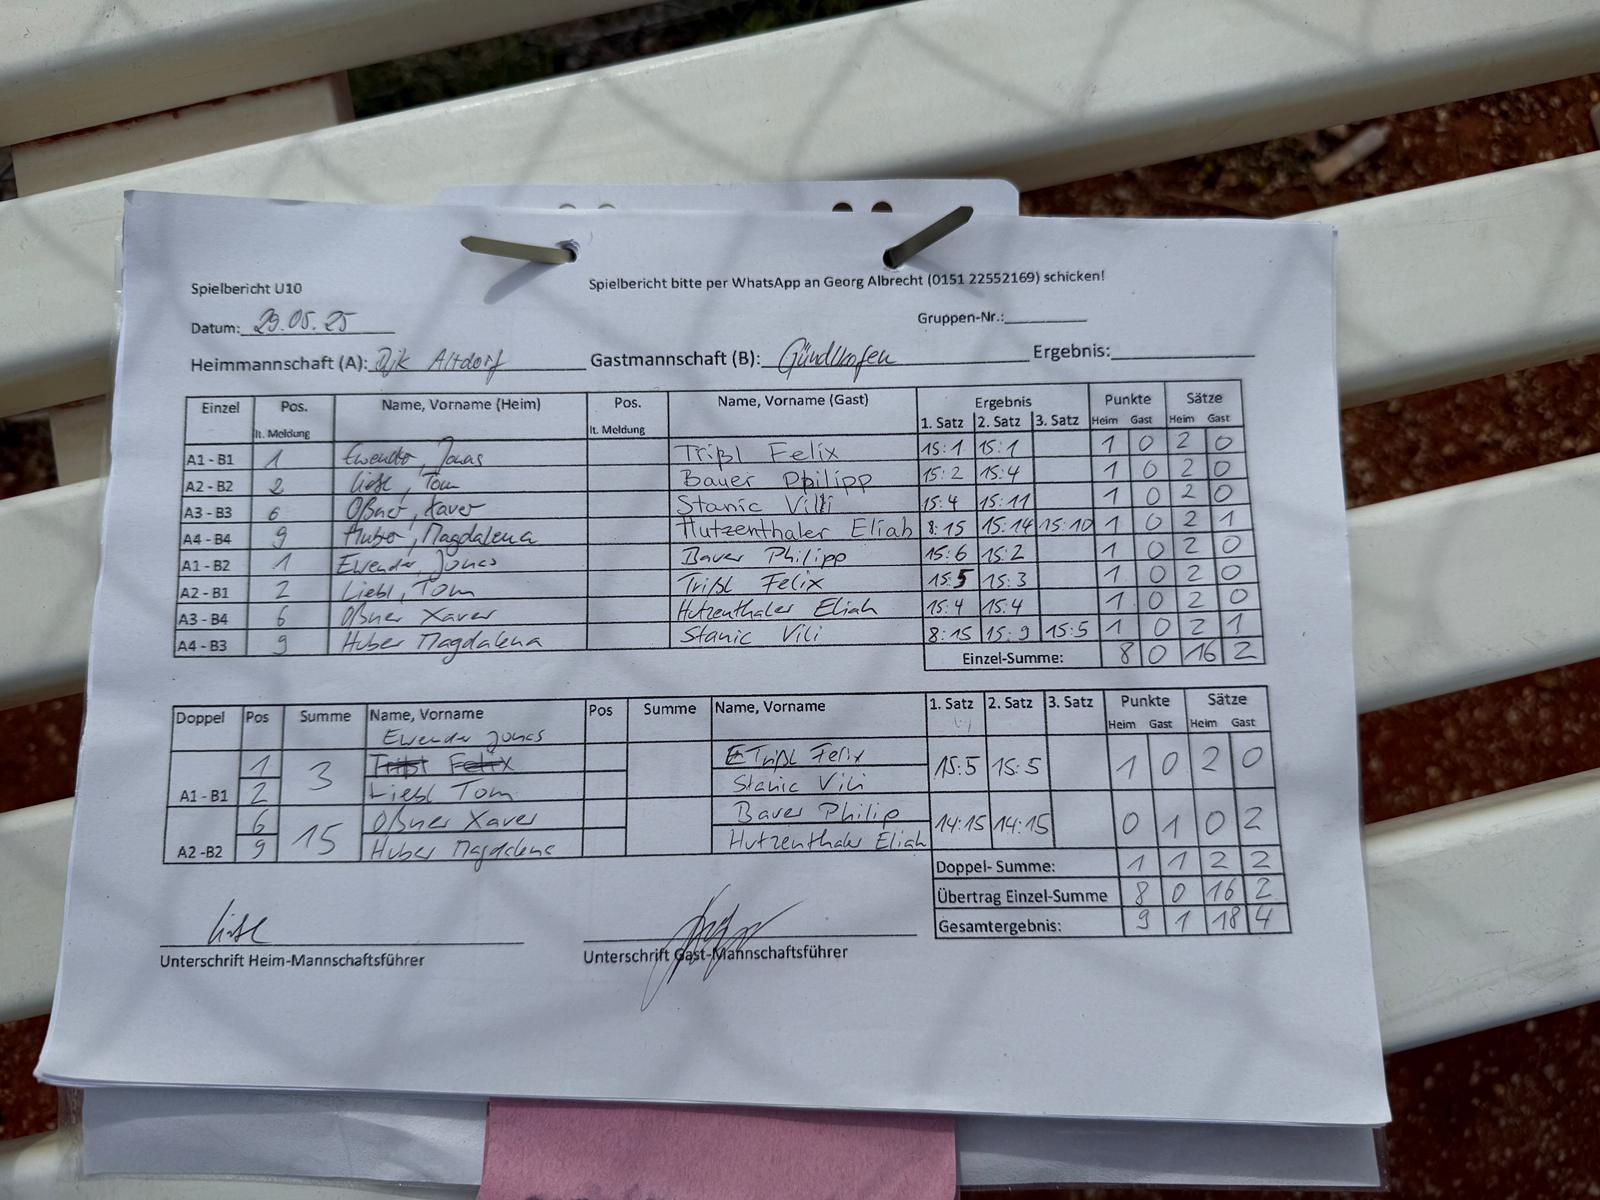 Spielbericht U10
Spielbericht bitte per WhatsApp an Georg Albrecht (0151 22552169) schicken!
Datum: 29.05.25
Gruppen-Nr.:
Heimmannschaft (A): Djk Altdorf Gastmannschaft (B): Gündlkofen Ergebnis:
Einzel Pos. Name, Vorname (Heim) Pos. Name, Vorname (Gast) Ergebnis Punkte Sätze
lt. Meldung lt. Meldung 1. Satz 2. Satz 3. Satz Heim Gast Heim Gast
A1 - B1 1 Ewender, Jonas Trißl Felix 15:1 15:1 1 0 2 0
A2 - B2 2 Liebl, Tom Bauer Philipp 15:2 15:4 1 0 2 0
A3 - B3 6 Oßner, Xaver Stanic Villi 15:4 15:11 1 0 2 0
A4 - B4 9 Huber, Magdalena Hutzenthaler Eliah 8:15 15:14 15:10 1 0 2 1
A1 - B2 1 Ewender, Jonas Bauer Philipp 15:6 15:2 1 0 2 0
A2 - B1 2 Liebl, Tom Trißl Felix 15:5 15:3 1 0 2 0
A3 - B4 6 Oßner Xaver Hutzenthaler Eliah 15:4 15:4 1 0 2 0
A4 - B3 9 Huber Magdalena Stanic Vili 8:15 15:9 15:5 1 0 2 1
Einzel-Summe: 8 0 16 2
Doppel Pos Summe Name, Vorname Pos Summe Name, Vorname 1. Satz 2. Satz 3. Satz Punkte Sätze
Heim Gast Heim Gast
Ewender Jonas
1 3 Trißl Felix Trißl Felix 15:5 15:5 1 0 2 0
A1 - B1 2 Liebl Tom Stanic Vili
6 15 Oßner Xaver Bauer Philip 14:15 14:15 0 1 0 2
A2 -B2 9 Huber Magdalena Hutzenthaler Eliah
Doppel- Summe: 1 1 2 2
Übertrag Einzel-Summe 8 0 16 2
Gesamtergebnis: 9 1 18 4
Liebl
Unterschrift Heim-Mannschaftsführer
Unterschrift Gast-Mannschaftsführer